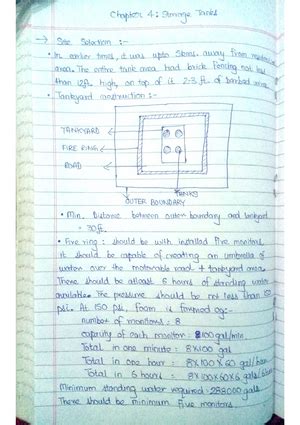 Chapter 4: Storage Tanks
→ Site Selection :-
• In earlier times, it was upto 5kms. away from residential
area. The entire tank area had brick fencing not less
than 12ft. high, on top of it 2-3 ft. of barbed wires.
• Tankyard construction :-
TANKYARD
FIRE RING
ROAD
TANKS
OUTER BOUNDARY
• Min. Distance between outer boundary and tankyard
= 30ft.
• Fire ring : should be with installed five monitors.
it should be capable of creating an umbrella of
water over the motorable road + tankyard area.
There should be atleast 6 hours of standing water
available. The pressure should be not less than 150
psi. At 150 psi, foam is formed eg:-
number of monitors : 8
capacity of each monitor : 100 gal/min.
Total in one minute : 8X100 gal
Total in one hour : 8X100X60 gal/hour
Total in 6 hours : 8X100X60X6 gal/6hrs
Minimum standing water required : 288000 gals
There should be minimum five monitors.